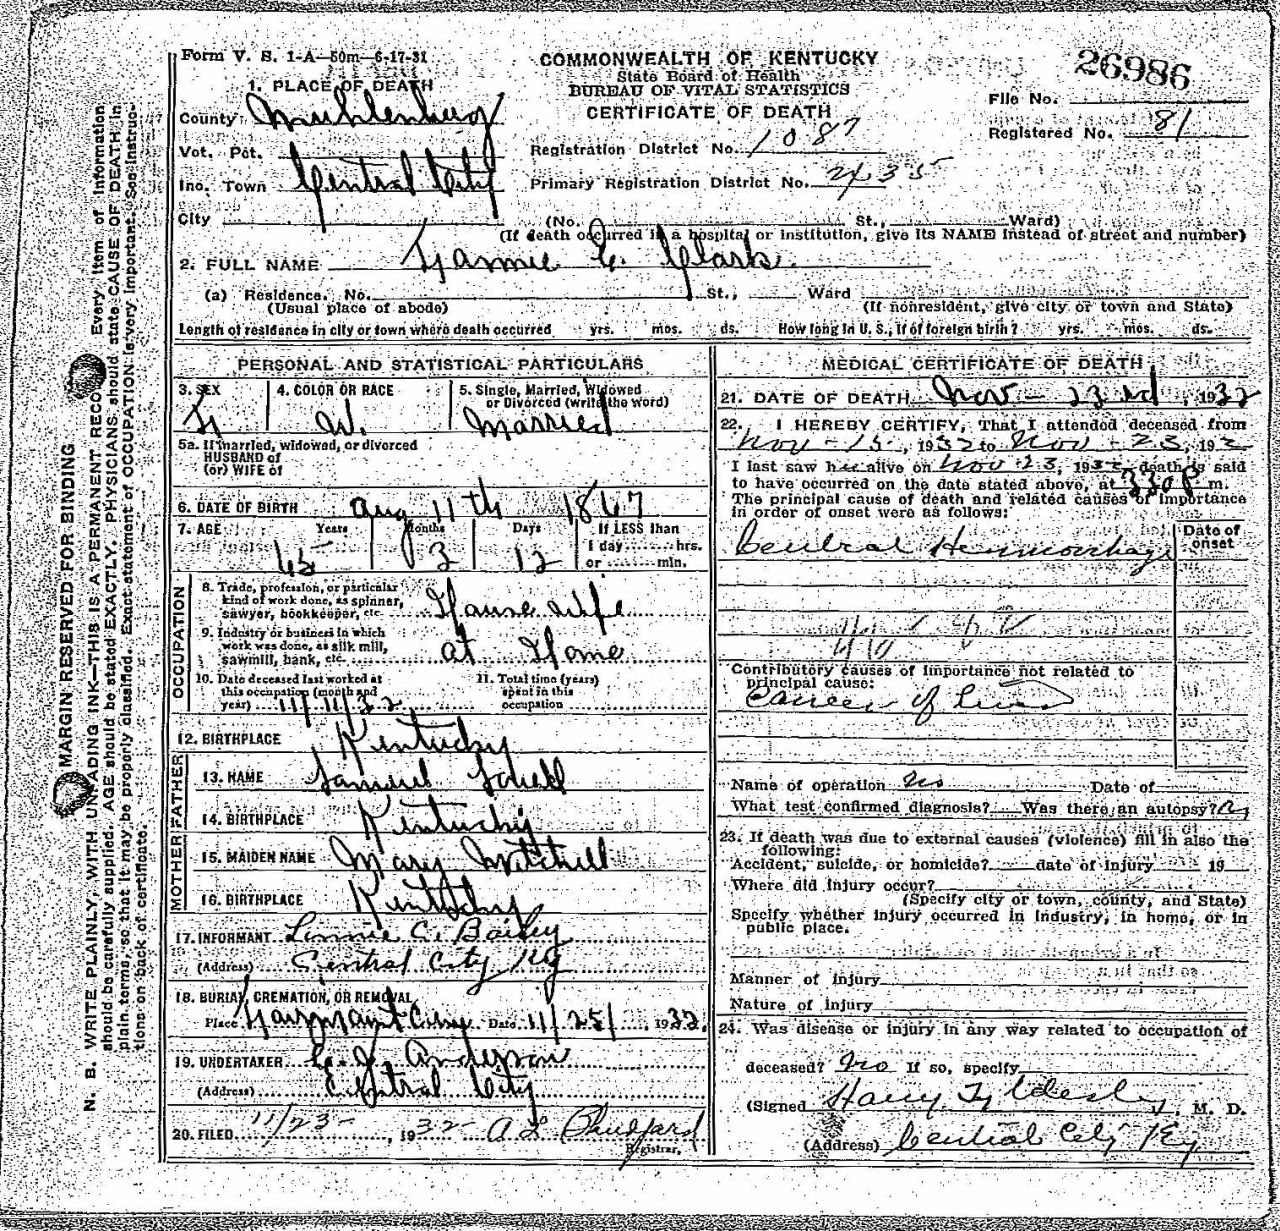 Form V. S. 1-A—50m—6-17-31
COMMONWEALTH OF KENTUCKY
State Board of Health
BUREAU OF VITAL STATISTICS
CERTIFICATE OF DEATH
26986
File No.
Registered No. 81
1. PLACE OF DEATH
County Muhlenburg
Vot. Pct.
Inc. Town Central City
City
Registration District No. 1087
Primary Registration District No. 2435
(No. St., Ward)
(If death occurred in a hospital or institution, give its NAME instead of street and number)
2. FULL NAME Fannie C. Clark
(a) Residence. No. St., Ward
(Usual place of abode) (If nonresident, give city or town and State)
Length of residence in city or town where death occurred yrs. mos. ds. How long in U. S., if of foreign birth? yrs. mos. ds.
PERSONAL AND STATISTICAL PARTICULARS
3. SEX 4. COLOR OR RACE 5. Single, Married, Widowed
or Divorced (write the word)
F W. Married
5a. If married, widowed, or divorced
HUSBAND of
(or) WIFE of
6. DATE OF BIRTH Aug 11th 1867
7. AGE Years Months Days If LESS than
1 day hrs.
65 3 12 or min.
OCCUPATION
8. Trade, profession, or particular
kind of work done, as spinner,
sawyer, bookkeeper, etc. House wife
9. Industry or business in which
work was done, as silk mill,
sawmill, bank, etc. at Home
10. Date deceased last worked at
this occupation (month and
year) 11/11/32
11. Total time (years)
spent in this
occupation
12. BIRTHPLACE Kentucky
FATHER
13. NAME Samuel
14. BIRTHPLACE Kentucky
MOTHER
15. MAIDEN NAME Mary Mitchell
16. BIRTHPLACE Kentucky
17. INFORMANT Lonnie C. Bailey
(Address) Central City Ky
18. BURIAL, CREMATION, OR REMOVAL
Place Fairmount Cem Date 11/25/ 1932.
19. UNDERTAKER Anderson
(Address) Central City
20. FILED 11/23- 1932 Registrar.
MEDICAL CERTIFICATE OF DEATH
21. DATE OF DEATH Nov - 23rd, 1932
22. I HEREBY CERTIFY, That I attended deceased from
Nov - 15, 1932 to Nov - 23, 193
I last saw her alive on Nov 23, 1932, death is said
to have occurred on the date stated above, at 330 P m.
The principal cause of death and related causes of importance
in order of onset were as follows:
Date of
onset
Cerebral Hemorrhage
Contributory causes of importance not related to
principal cause:
Cancer of
Name of operation no Date of
What test confirmed diagnosis? Was there an autopsy?
23. If death was due to external causes (violence) fill in also the
following:
Accident, suicide, or homicide? date of injury 19
Where did injury occur?
(Specify city or town, county, and State)
Specify whether injury occurred in industry, in home, or in
public place.
Manner of injury
Nature of injury
24. Was disease or injury in any way related to occupation of
deceased? no If so, specify
(Signed Harry Tyldesley, M. D.
(Address) Central City Ky
MARGIN RESERVED FOR BINDING
N. B. WRITE PLAINLY, WITH UNFADING INK—THIS IS A PERMANENT RECORD. Every item of information
should be carefully supplied. AGE should be stated EXACTLY. PHYSICIANS should state CAUSE OF DEATH in
plain terms, so that it may be properly classified. Exact statement of OCCUPATION is very important. See instruc-
tions on back of certificate.